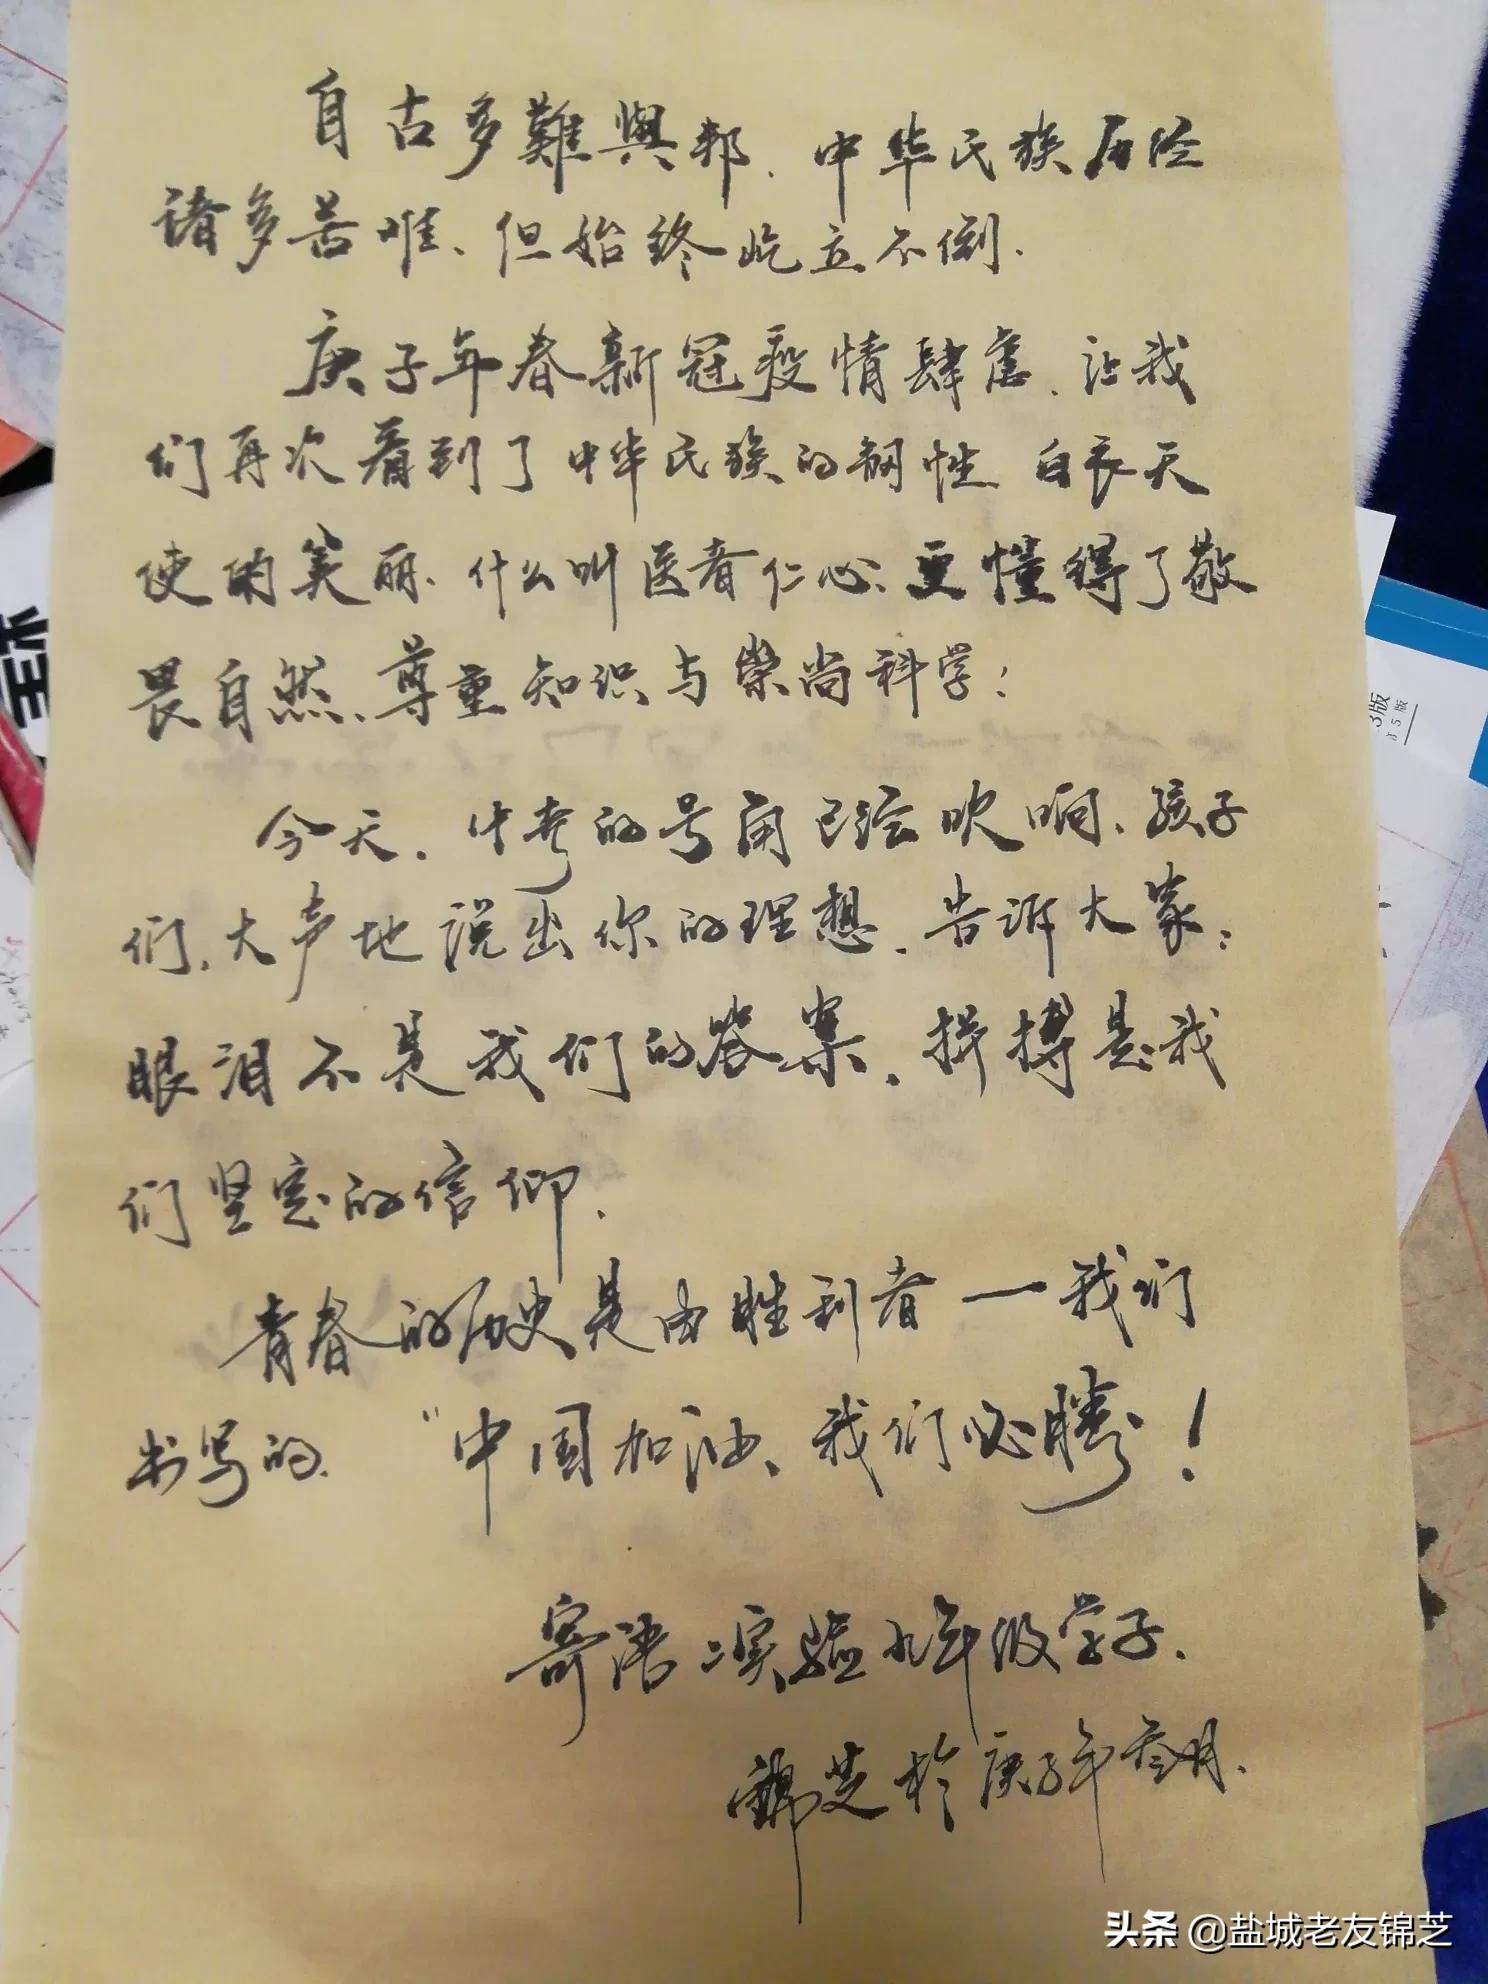 自古多難與邦、中华民族历经
诸多苦难、但始终屹立不倒.
庚子年春新冠疫情肆虐、让我
们再次看到了中华民族的韧性、白衣天
使的美丽、什么叫医者仁心、更懂得了敬
畏自然、尊重知识与崇尚科学！
今天、中考的号角已经吹响、孩子
们、大声地说出你的理想、告诉大家：
眼泪不是我们的答案、拼搏是我
们坚定的信仰.
青春的历史是由胜利者一我们
书写的、“中国加油、我们必勝！
寄语二实验九年级学子.
錦芝於庚子年叁月.
3版
第5版
头条 @盐城老友锦芝